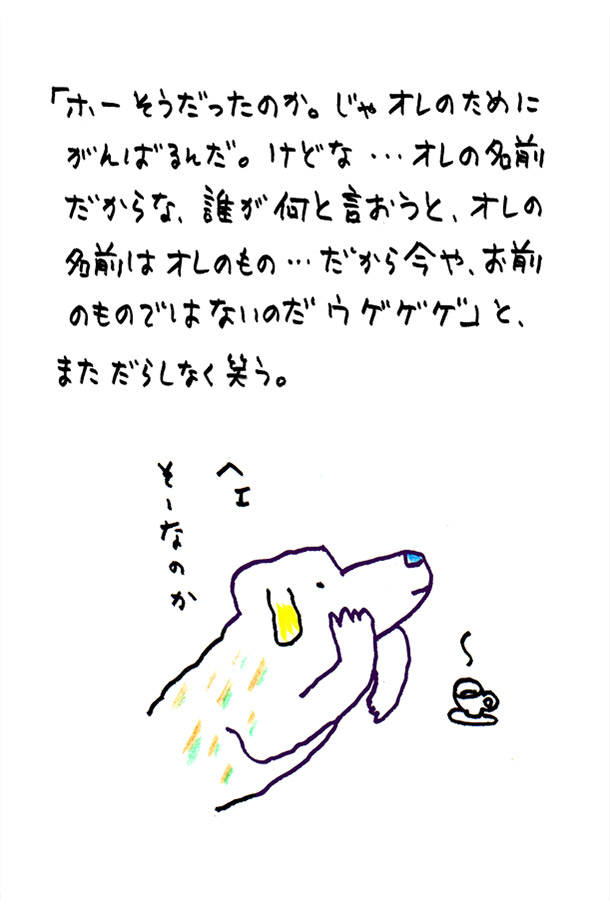 「ホー そうだったのか。じゃ オレのために
がんばるんだ。けどな…オレの名前
だからな、誰が何と言おうと、オレの
名前は オレのもの…だから今や、お前
のものではないのだ ウゲゲゲ」と、
まただらしなく笑う。
ヘエ
そーなのか